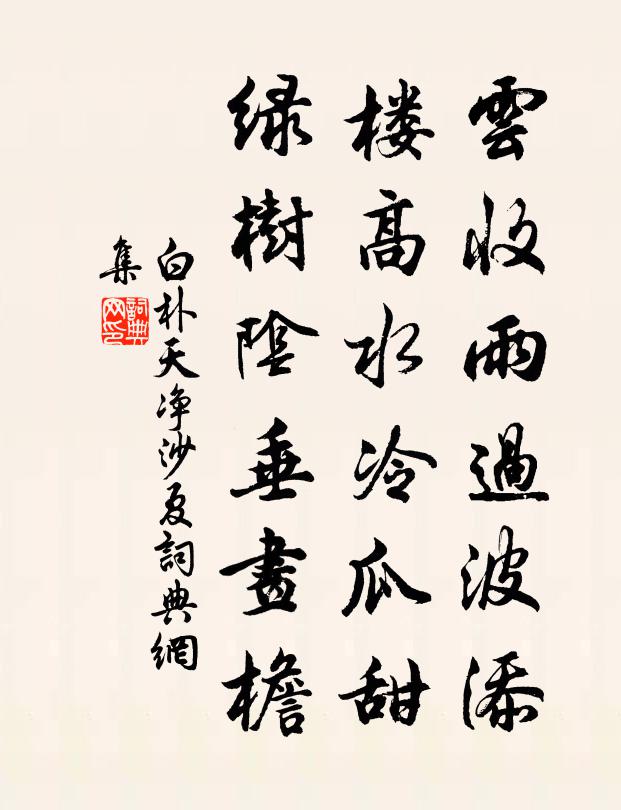 雲收雨過波添
楼高水冷瓜甜
绿樹陰垂畫檐
白朴天净沙夏詞典網
集
詞典网印